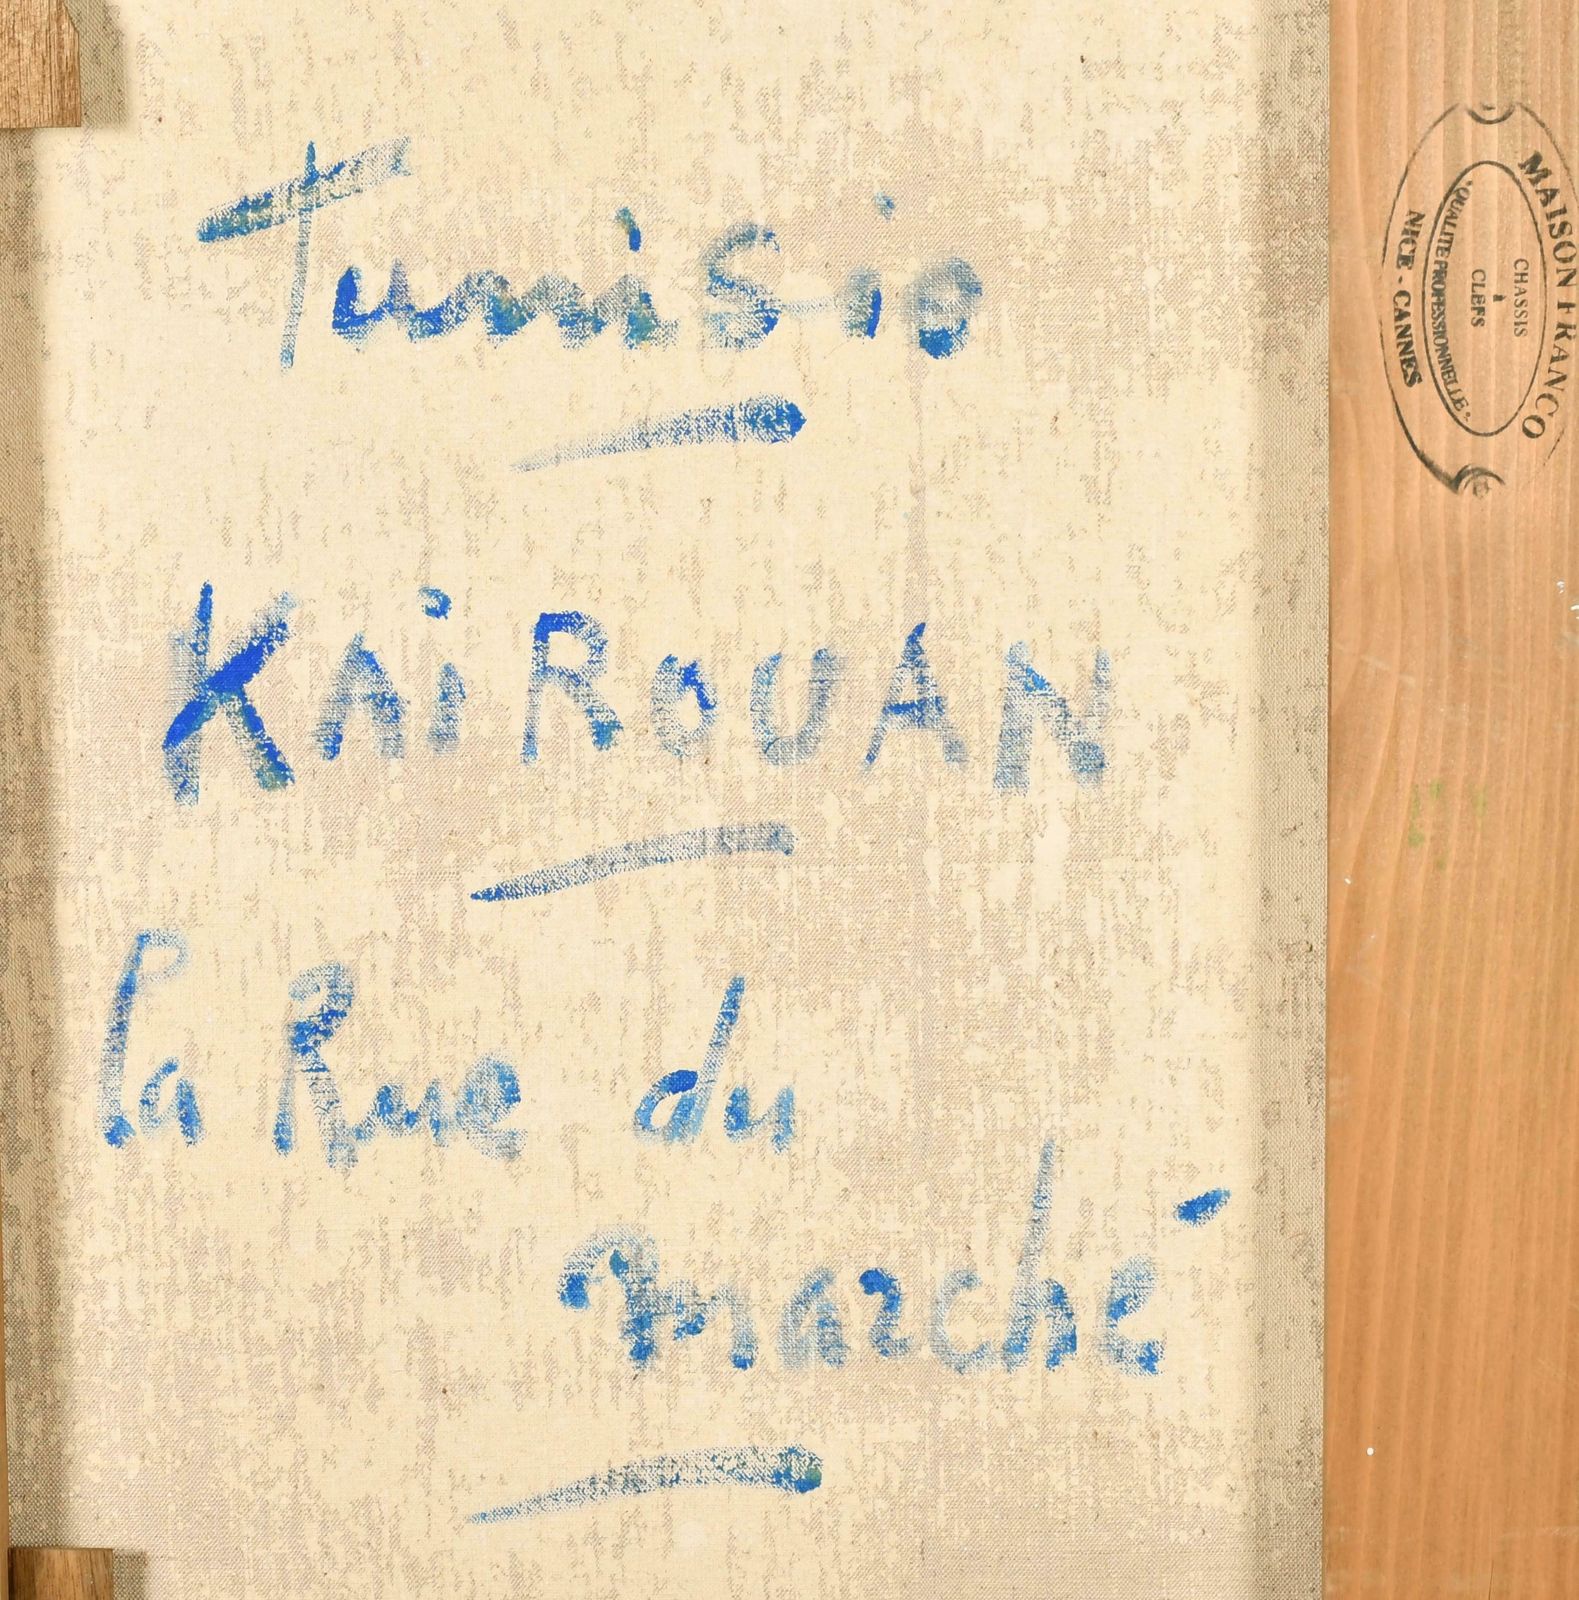 Tunisie
KAiROUAN
la Rue du
marché
MAISON FRANCO
CHASSIS
à
CLEFS
"QUALITE PROFESSIONNELLE"
NICE - CANNES